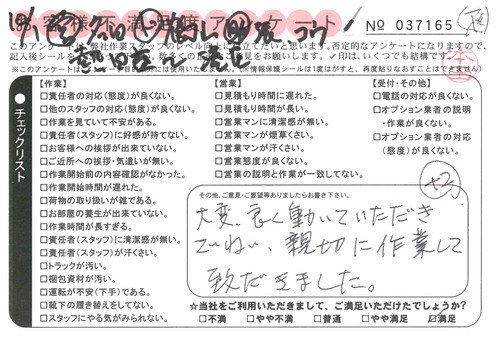 お客様不満足度アンケート
№ 037165
このアンケートは、弊社作業スタッフのレベル向上に役立てたいと思います。否定的なアンケートになりますので、
記入後シールを
お願いします。✓印は、いくつでも結構です。
(※情報保護シールは1度はがすと、再度貼りなおすことはできません)
チェックリスト
【作業】
□責任者の対応(態度)が良くない。
□他のスタッフの対応(態度)が良くない。
□作業を見ていて不安がある。
□責任者(スタッフ)に好感が持てない。
□お客様への挨拶が出来ていない。
□ご近所への挨拶・気遣いが無い。
□作業開始前の内容確認がなかった。
□作業開始時間が遅れた。
□荷物の取り扱いが雑である。
□お部屋の養生が出来ていない。
□作業時間が長すぎる。
□責任者(スタッフ)に清潔感が無い。
□責任者(スタッフ)が汗くさい。
□トラックが汚い。
□梱包資材が汚い。
□運転が不安(下手)である。
□靴下の履き替えをしてない。
□スタッフにやる気がみられない。
【営業】
□見積もり時間に遅れた。
□見積もり時間が長い。
□営業マンに清潔感が無い。
□営業マンが煙草くさい。
□営業マンが汗くさい。
□営業態度が良くない。
□営業の説明と作業が一致してない。
【受付・その他】
□電話の対応が良くない。
□オプション業者の説明
・作業が良くない。
□オプション業者の対応
(態度)が良くない。
その他、ご意見・ご要望等ありましたらお書き下さい。
大変、良く動いていただき
ていねい、親切に作業して
致だきました。
☆当社をご利用いただきまして、ご満足いただけたでしょうか?
□不満 □やや不満 □普通 □やや満足 ☑満足